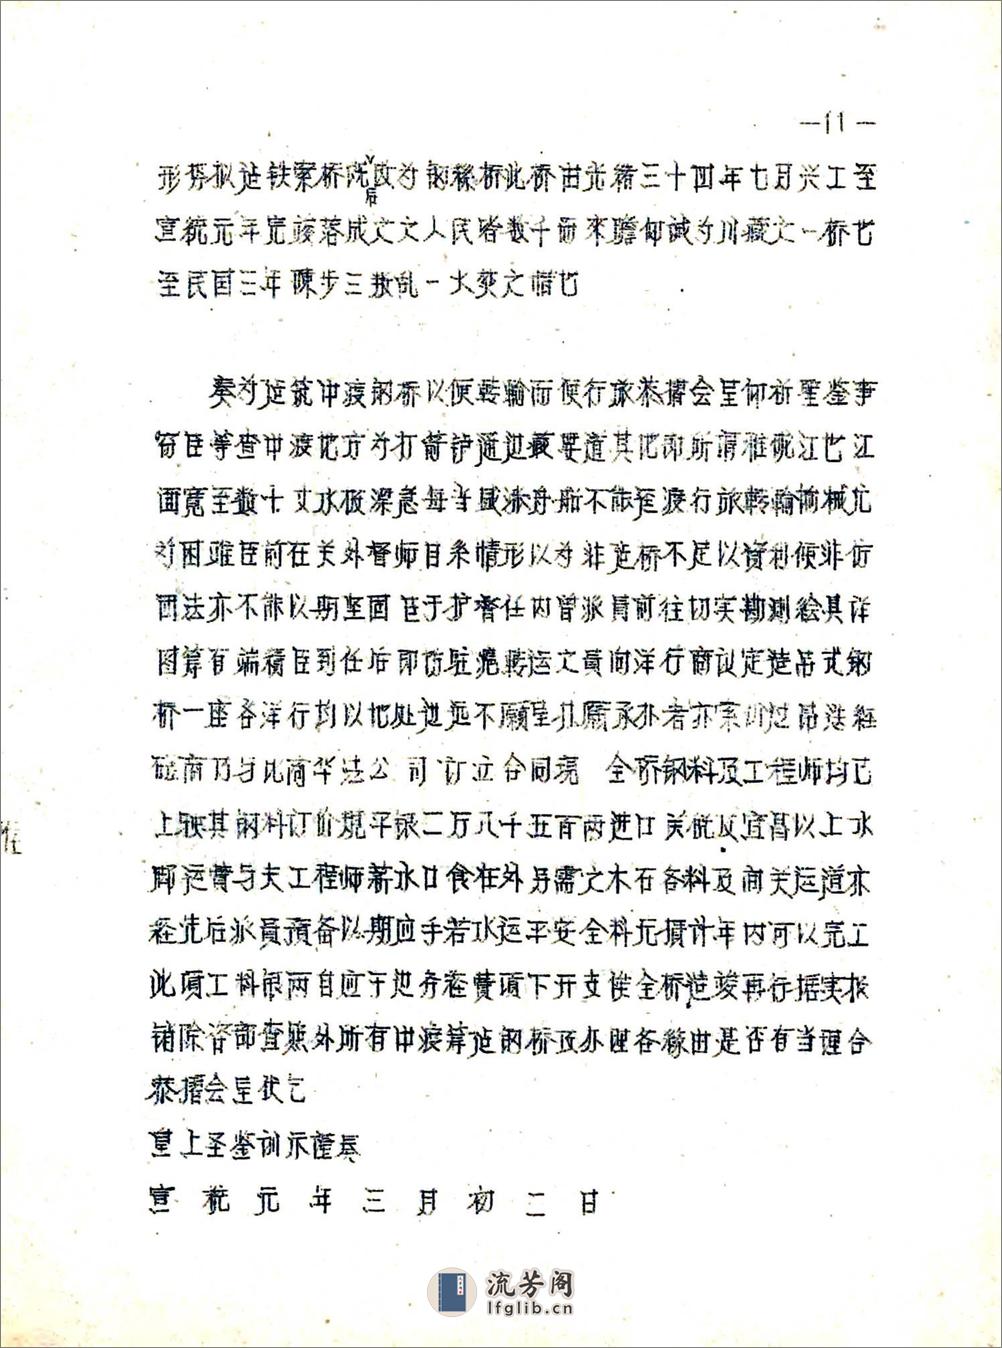 —11—
形势拟造铁索桥改后为钢梁桥此桥由光绪三十四年七月兴工至
宣统元年完竣落成文文人民皆数千而来瞻仰诚为川藏之一桥也
至民国三年陳步三叛乱一火焚之惜也
奏为建筑中渡钢桥以便转输而便行旅恭摺会呈仰祈圣鉴事
窃臣等查中渡地方为打箭炉通边藏要道其地即所谓雅砻江也江
面宽至数十丈水极深急每当盛涨舟船不能径渡行旅转输尤
为困难臣前在关外督师目杀情形以为非造桥不足以资利便非仿
西法亦不能以期坚固臣于护督任内曾派员前往切实勘测绘具详
图算有端绪臣到任后即饬驻沪转运之员向洋行商议定造吊式钢
桥一座各洋行均以地处边远不愿呈承办者亦索
商乃与比商华法公司订立合同现 全桥钢料及工程师均已
上驶其钢料订价规平银二万八千五百两进口关税及宜昌以上水
脚运费与夫工程师薪水口食在外另需之木石各料及向关运道亦
经先后派员预备以期应手若水运平安全料无损计年内可以完工
此项工料银两自应于边务经费项下开支俟全桥造竣再行据实报
销除咨部查照外所有中渡筹造钢桥改办理各缘由是否有当理合
恭摺会呈伏乞
皇上圣鉴训示谨奏
宣统元年三月初二日
准
流芳阁
lfglib.cn